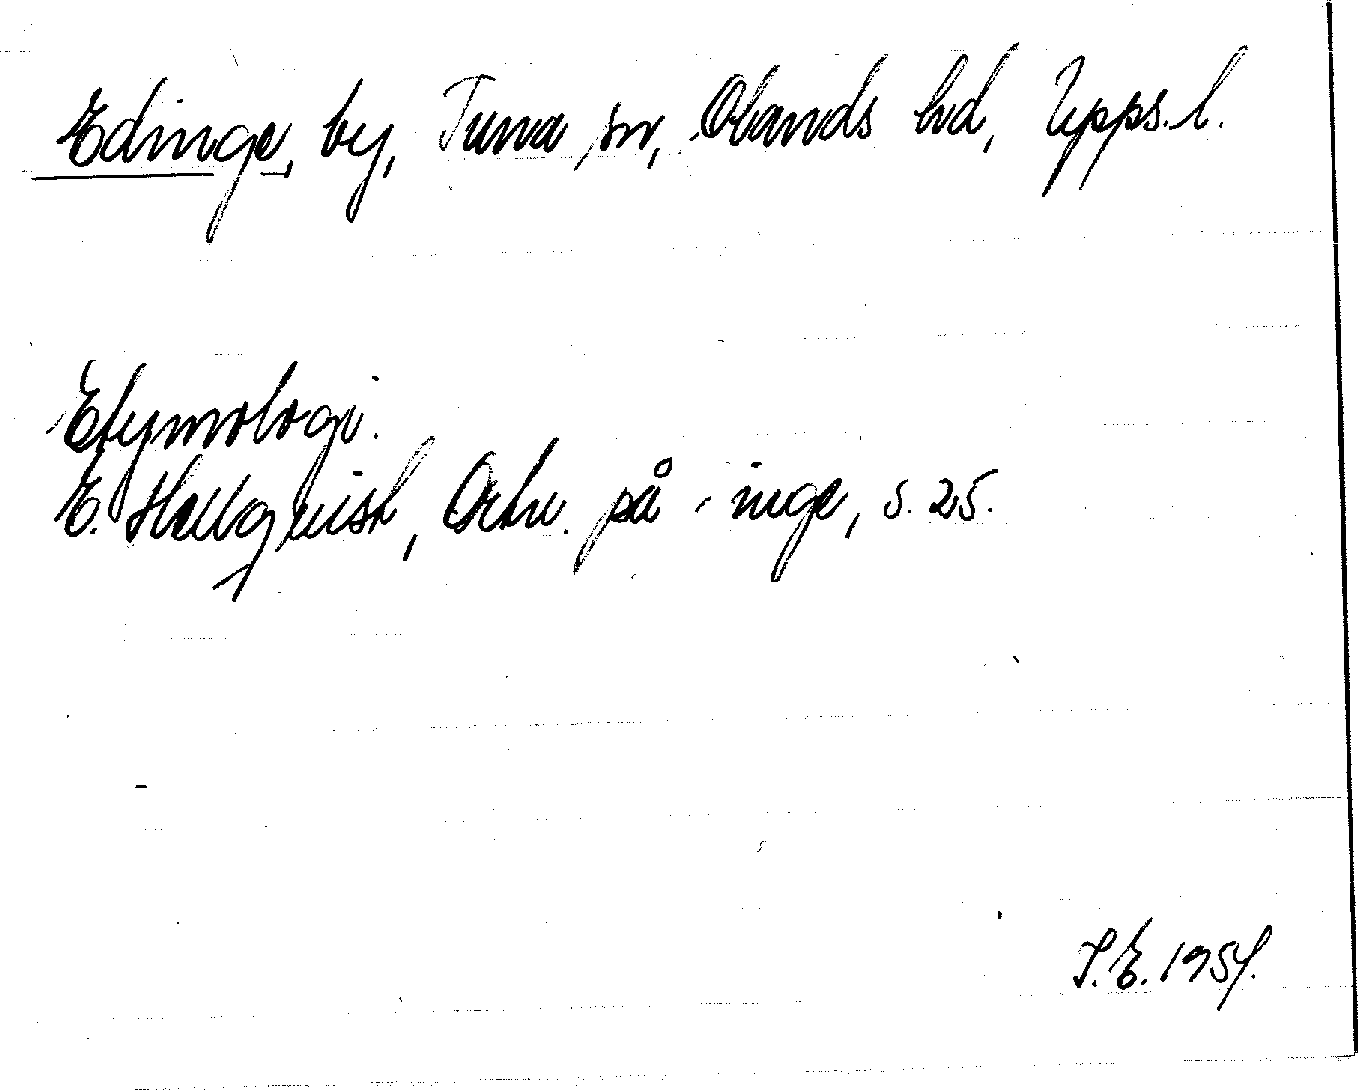 Edinge, by, Tuna sn, Olands hd, Upps. l.
Etymologi.
E. Hellquist, Ortn. på -inge, s. 25.
S.E. 1954.